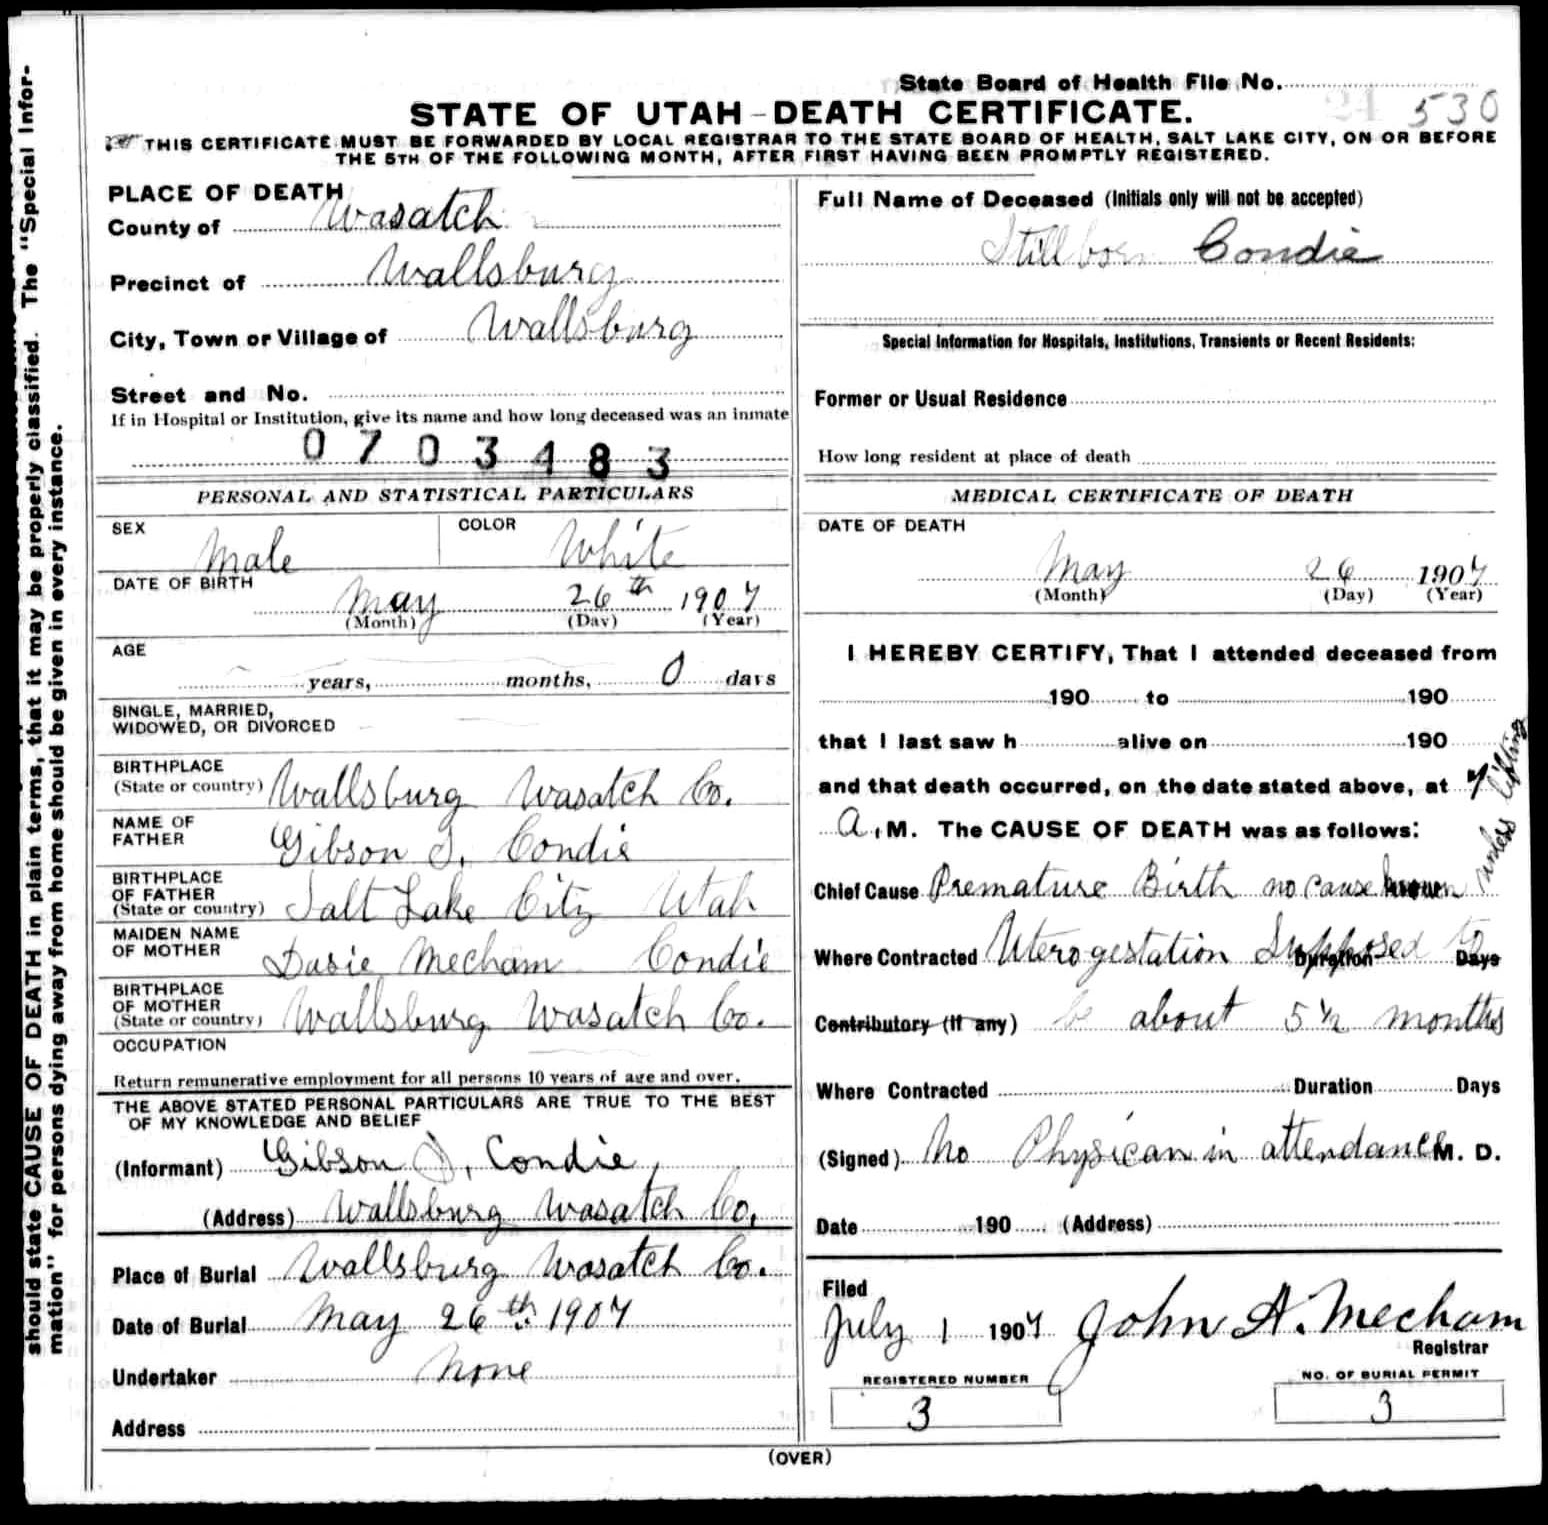 should state CAUSE OF DEATH in plain terms, that it may be properly classified. The "Special Infor-
mation" for persons dying away from home should be given in every instance.
State Board of Health File No.
530
STATE OF UTAH-DEATH CERTIFICATE.
THIS CERTIFICATE MUST BE FORWARDED BY LOCAL REGISTRAR TO THE STATE BOARD OF HEALTH, SALT LAKE CITY, ON OR BEFORE
THE 5TH OF THE FOLLOWING MONTH, AFTER FIRST HAVING BEEN PROMPTLY REGISTERED.
PLACE OF DEATH
County of Wasatch
Precinct of Wallsburg
City, Town or Village of Wallsburg
Street and No.
If in Hospital or Institution, give its name and how long deceased was an inmate
0703483
PERSONAL AND STATISTICAL PARTICULARS
SEX Male COLOR White
DATE OF BIRTH
May 26th 1907
(Month) (Day) (Year)
AGE
years, months, 0 days
SINGLE, MARRIED,
WIDOWED, OR DIVORCED
BIRTHPLACE
(State or country) Wallsburg Wasatch Co.
NAME OF
FATHER Gibson J. Condie
BIRTHPLACE
OF FATHER
(State or country) Salt Lake City Utah
MAIDEN NAME
OF MOTHER Dasie Mecham Condie
BIRTHPLACE
OF MOTHER
(State or country) Wallsburg Wasatch Co.
OCCUPATION
Return remunerative employment for all persons 10 years of age and over.
THE ABOVE STATED PERSONAL PARTICULARS ARE TRUE TO THE BEST
OF MY KNOWLEDGE AND BELIEF
(Informant) Gibson J. Condie,
(Address) Wallsburg Wasatch Co.
Place of Burial Wallsburg Wasatch Co.
Date of Burial May 26th. 1907
Undertaker None
Address
Full Name of Deceased (Initials only will not be accepted)
Stillborn Condie
Special Information for Hospitals, Institutions, Transients or Recent Residents:
Former or Usual Residence
How long resident at place of death
MEDICAL CERTIFICATE OF DEATH
DATE OF DEATH
May 26 1907
(Month) (Day) (Year)
I HEREBY CERTIFY, That I attended deceased from
190 to 190
that I last saw h alive on 190
and that death occurred, on the date stated above, at 7
A.M. The CAUSE OF DEATH was as follows:
Chief Cause Premature Birth no cause known unless lifting
Where Contracted Uterogestation Supposed to Duration Days
Contributory (If any) be about 5 1/2 months
Where Contracted Duration Days
(Signed) No Physican in attendance M. D.
Date 190 (Address)
Filed
July 1 1907 John A. Mecham
Registrar
REGISTERED NUMBER
3
NO. OF BURIAL PERMIT
3
(OVER)